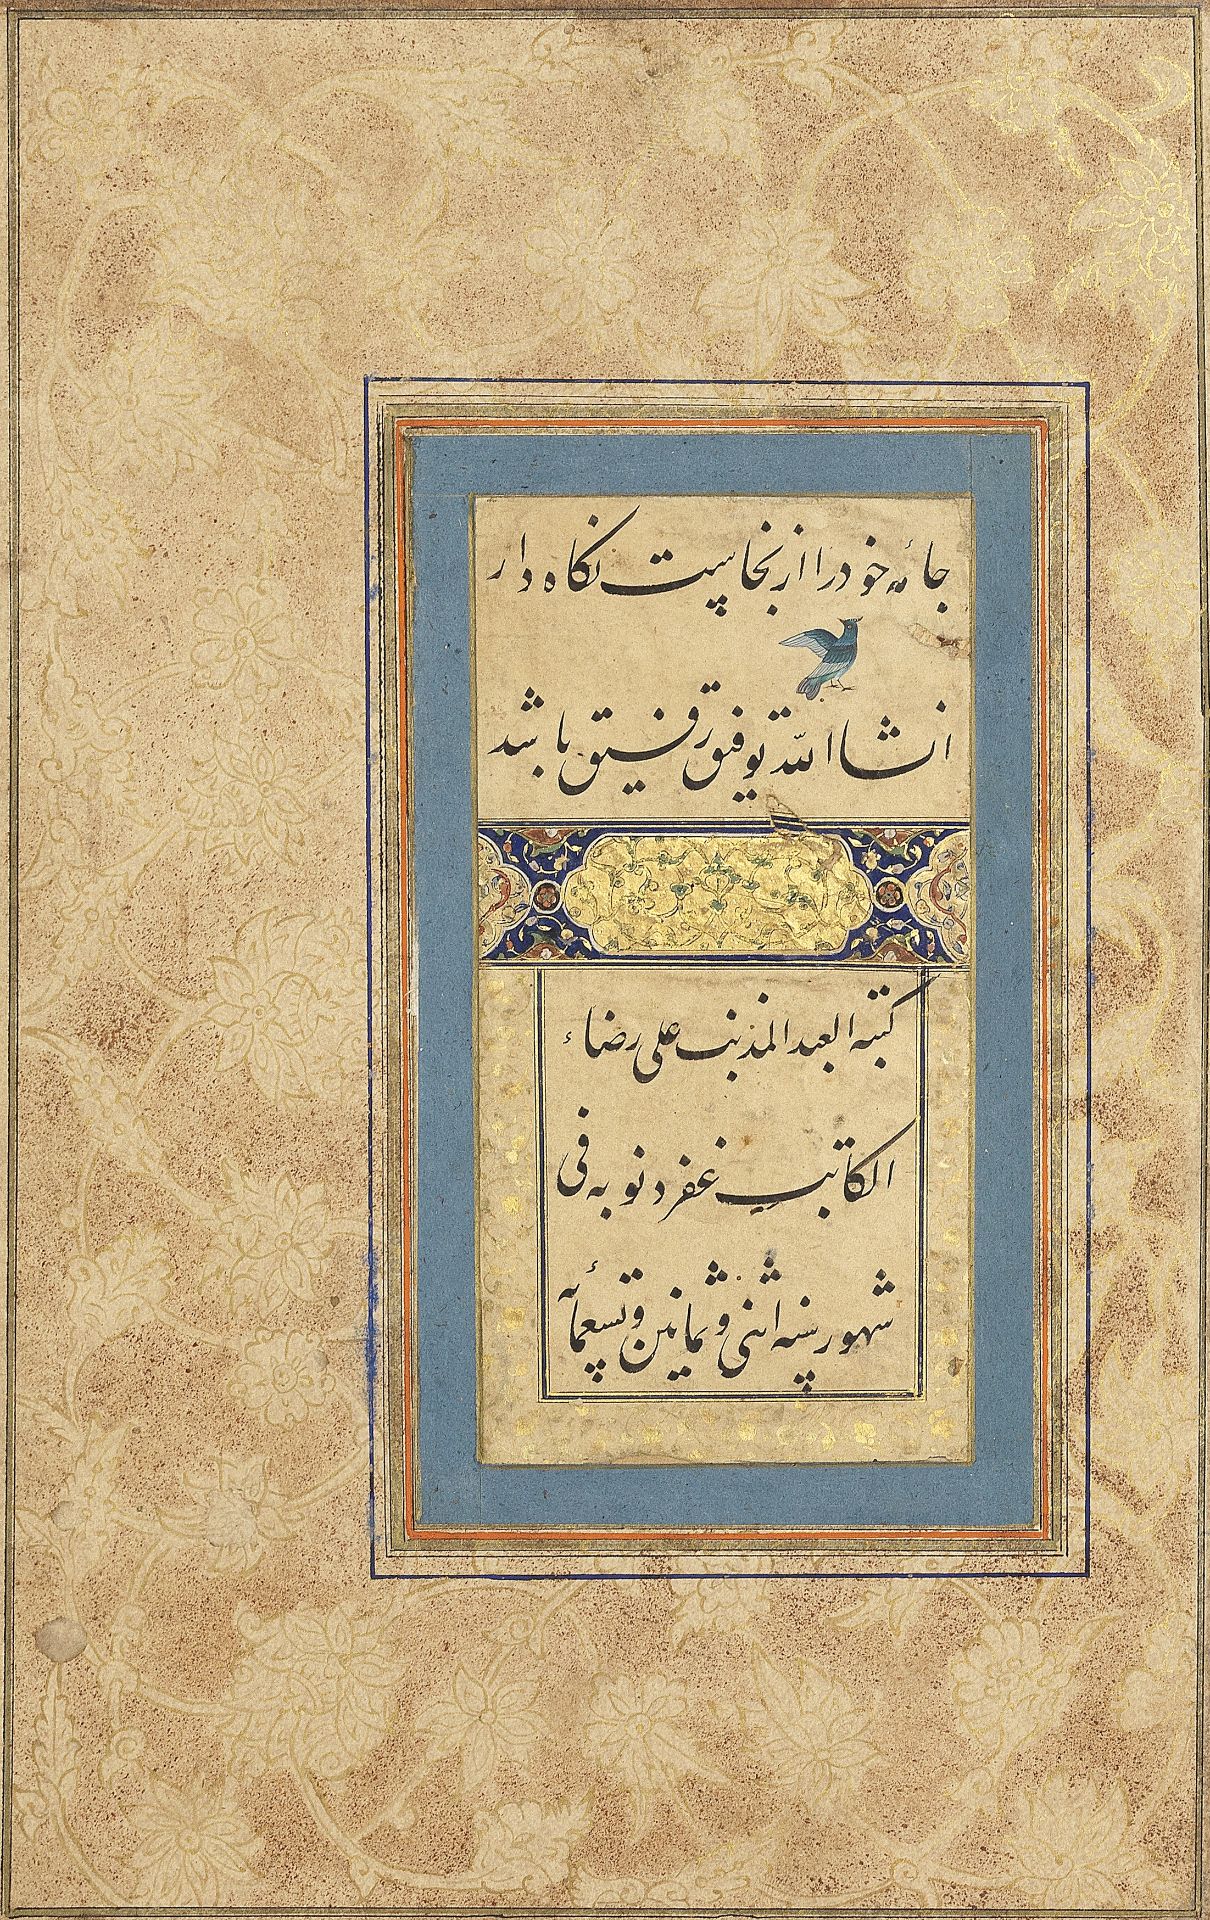 جامهٔ خود را از نجاست نگاه دار
انشاالله توفیق رفیق باشد
کتبه العبد المذنب علی رضاء
الکاتب غفر ذنوبه فی
شهور سنه اثنی و ثمانین و تسعمأئه